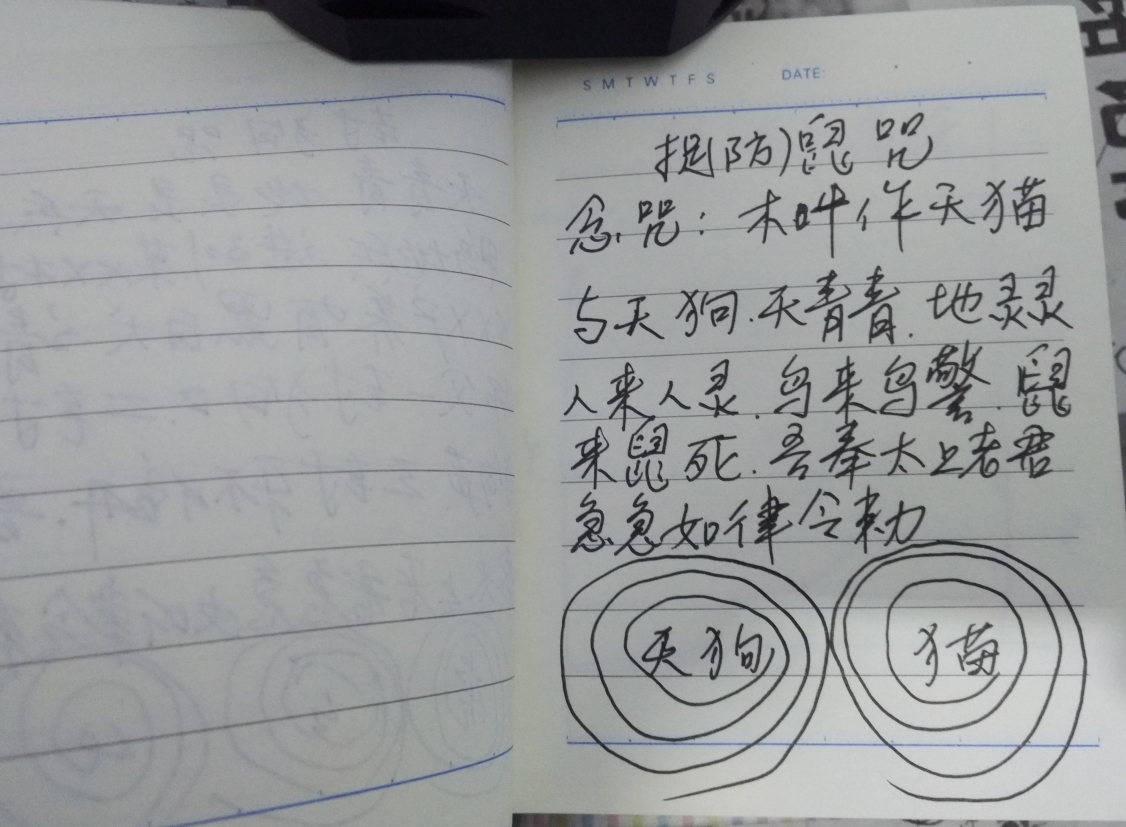 S M T W T F S DATE:
捉(防)鼠咒
念咒：木叶作天猫
与天狗.天青青.地灵灵
人来人灵.鸟来鸟警.鼠
来鼠死.吾奉太上老君
急急如律令勅
天狗 猫